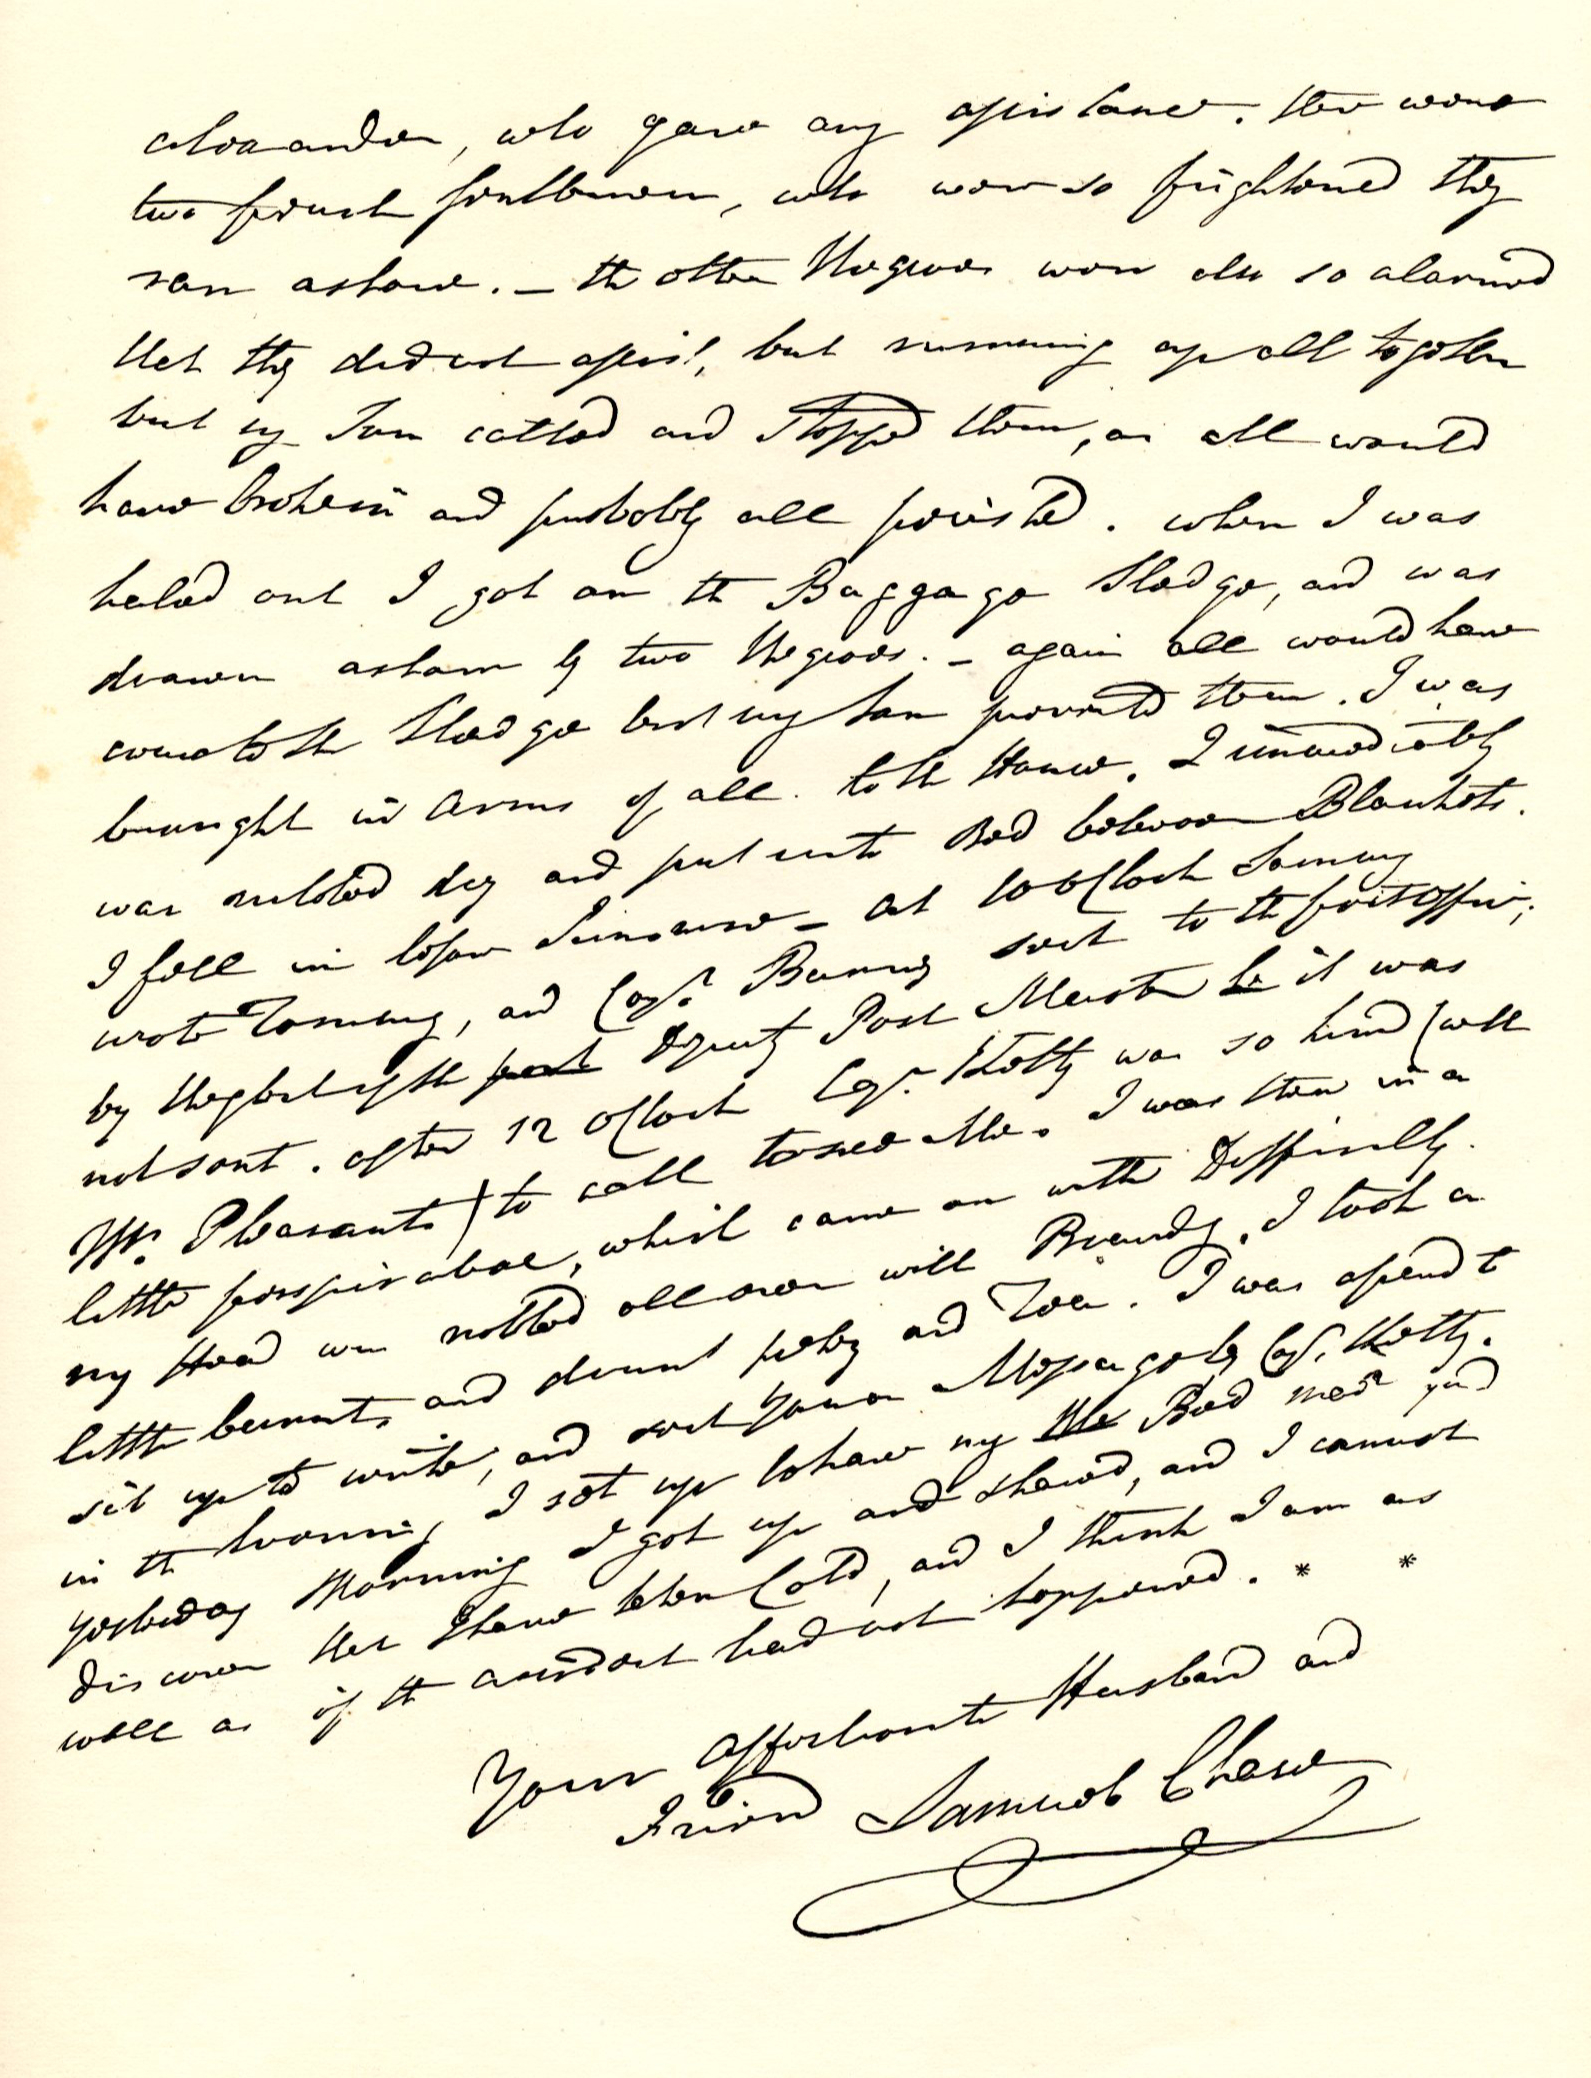 alexander, who gave any assistance. ther were
two french Gentlemen, who were so frightened they
ran ashore. – the other Negroes were also so alarmed
that they did not assist, but running up all together
but my Son called and stopped them, or all would
have broke in and probably all perished. when I was
haled out I got on the Baggage Sledge, and was
drawn ashore by two Negroes. – again all would have
come to the Sledge but my Son prevented them. I was
brought in Arms of all. to the House. I immediately
was rubbed dry and put into Bed between Blankets.
I fell in before Sunrise – at 10 oClock Sammy
wrote Tommy, and Capt. Barney sent to the post office;
by Neglect of the post Deputy Post Master it was
not sent. after 12 oClock Capt. Kelty was so kind (with
Mr. Pleasants) to call to see Me. I was then in a
little perspiration, which came on with Difficulty.
my Head was rubbed all over with Brandy. I took a
little burnt, and drank whey and Tea. I was afraid to
sit up to write, and sent You a Message by Capt. Kelty.
in the Evening I sat up to have my Bed made and
yesterday Morning I got up and shaved, and I cannot
discover that I have taken Cold, and I think I am as
well as if the accident had not happened. * *
Your affectionate Husband and
Friend Samuel Chase